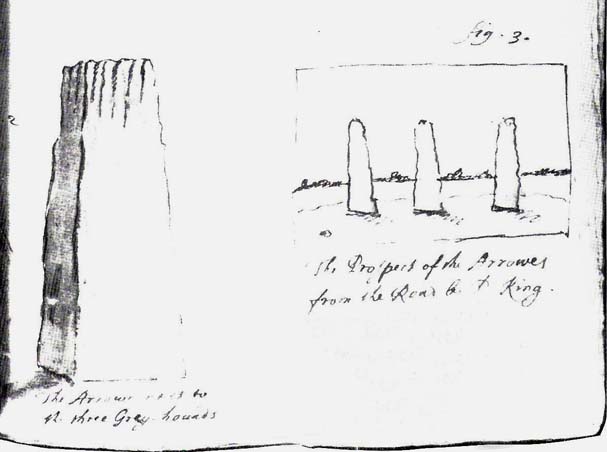 fig. 3.
2
The Prospect of the Arrowes
from the Road King.
The Arrow to
the three Grey-hounds